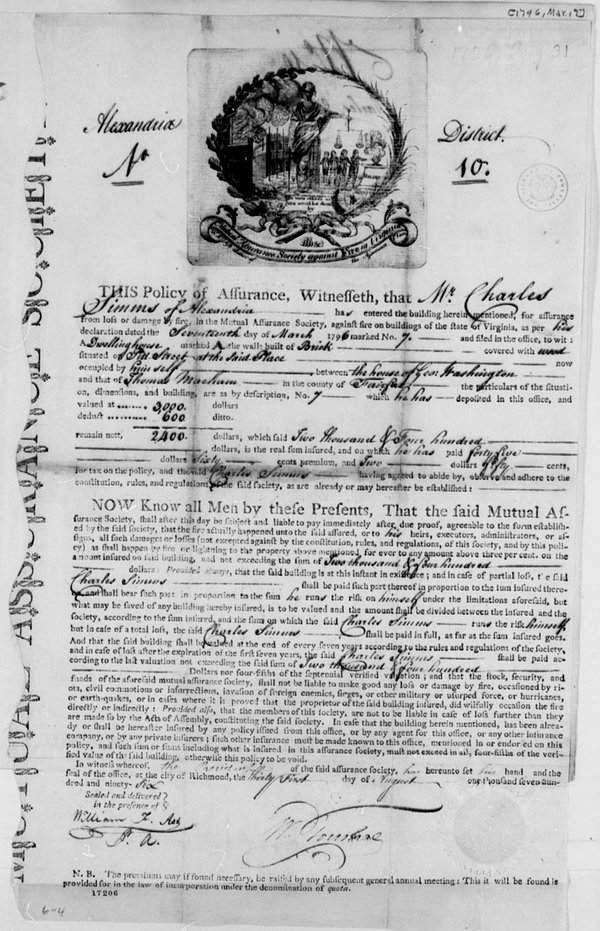 [1796, Mar. 17]
31
Alexandria
District.
No
10.
Mutual Assurance Society against Fire in Virginia
MUTUAL ASSURANCE SOCIETY
THIS Policy of Assurance, Witnesseth, that Mr. Charles
Simms of Alexandria has entered the building herein mentioned, for assurance
from loss or damage by fire, in the Mutual Assurance Society, against fire on buildings of the state of Virginia, as per his
declaration dated the Seventeenth day of March 1796 marked No. 7. and filed in the office, to wit:
A Dwellinghouse marked A the walls built of Brick covered with wood
situated of Pitt Street at the Said Place now
occupied by himself between the house of Geo: Washington
and that of Thomas in the county of Fairfax the particulars of the situati-
on, dimensions, and building, are as by description, No. 7 which he has deposited in this office, and
valued at 3,000 dollars
deduct 600 ditto.
remain nett, 2400. dollars, which said Two thousand & Four hundred
dollars, is the real sum insured, and on which he has paid forty five
dollars Sixty cents premium, and Two dollars fifty cents,
for tax on the policy, and the said Charles Simms having agreed to abide by, observe and adhere to the
constitution, rules, and regulations of the said society, as are already or may hereafter be established:
NOW Know all Men by these Presents, That the said Mutual As-
surance Society, shall after this day be subject and liable to pay immediately after due proof, agreeable to the form establish-
ed by the said society, that the fire actually happened unto the said assured, or to his heirs, executors, administrators, or as-
signs, all such damages or losses (not excepted against by the constitution, rules, and regulations, of this society, and by this poli-
cy) as shall happen by fire or lightening to the property above mentioned, for ever to any amount above three per cent. on the
amount insured on said building, and not exceeding the sum of Two thousand & four hundred
dollars: Provided always, that the said building is at this instant in existence; and in case of partial loss, the said
Charles Simms shall be paid such part thereof in proportion to the sum insured there-
and shall bear such part in proportion to the sum he runs the risk on himself under the limitations aforesaid, but
what may be saved of any building hereby insured, is to be valued and the amount shall be divided between the insured and the
society, according to the sum insured, and the sum on which the said Charles Simms runs the risk himself
but in case of a total loss, the said Charles Simms shall be paid in full, as far as the sum insured goes.
And that the said building shall be valued at the end of every seven years according to the rules and regulations of the society,
and in case of loss after the expiration of the first seven years, the said Charles Simms shall be paid ac-
cording to the last valuation not exceeding the said sum of Two thousand & four hundred
Dollars nor four-fifths of the septennial verified valuation; and that the stock, security, and
funds of the aforesaid mutual assurance society, shall not be liable to make good any loss or damage by fire, occasioned by ri-
ots, civil commotions or insurrections, invasion of foreign enemies, seges, or other military or usurped force, or hurricanes,
or earth-quakes, or in cases where it is proved that the proprietor of the said building insured, did wilfully occasion the fire
directly or indirectly: Provided also, that the members of this society, are not to be liable in case of loss further than they
are made so by the Acts of Assembly, constituting the said society. In case that the building herein mentioned, has been alrea-
dy or shall be hereafter insured by any policy issued from this office, or by any agent for this office, or any other insurance
company, or by any private insurers; such other insurance must be made known to this office, mentioned in or endorsed on this
policy, and such sum or sums including what is insured in this assurance society, must not exceed in all, four-fifths of the veri-
fied value of the said building, otherwise this policy to be void.
In witness whereof, The of the said assurance society, has hereunto set his hand and the
seal of the office, at the city of Richmond, the thirty First day of August one thousand seven hun-
dred and ninety-Six
Sealed and delivered
in the presence of
William F. Ast
P. A.
N. B. The premiums may if found necessary, be raised by any subsequent general annual meeting: This it will be found is
provided for in the law of incorporation under the denomination of quota.
17206
6-4